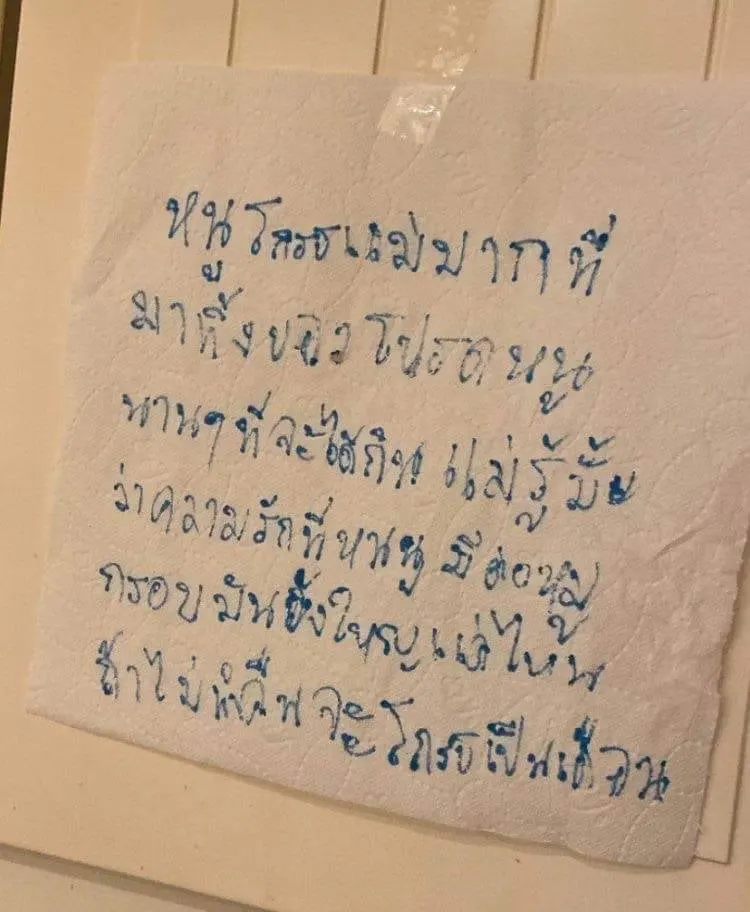 หนูโกรธแม่มากที่
มาทิ้งของโปรดหนู
นานๆที่จะได้กิน แม่รู้มั้ย
ว่าความรักที่หนูมีต่อหมู
กรอบมันยิ่งใหญ่แค่ไหน
ถ้าไม่ทำคืนจะโกรธเป็นเดือน